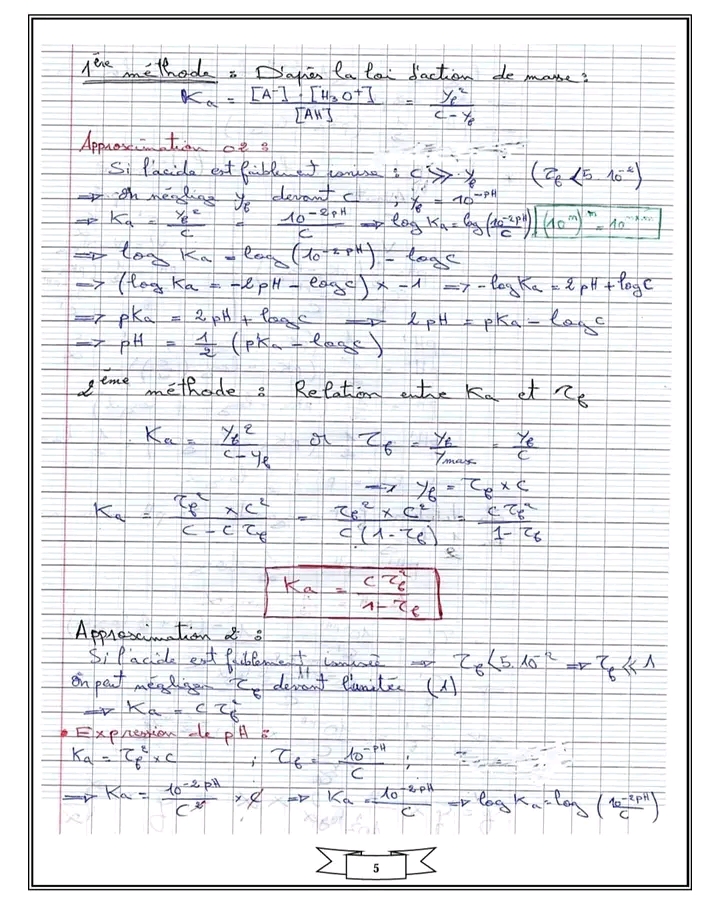 1ère méthode : D'après la loi d'action de masse :
Ka = [A-] . [H3O+] / [AH] = yf² / C - yf
Approximation 02 :
Si l'acide est faiblement ionisé : C >> yf (τf < 5 10^-2)
=> On néglige yf devant C ; yf = 10^-pH
=> Ka = yf² / C = 10^-2pH / C => log Ka = log (10^-2pH / C) (10^m)^n = 10^m×n
=> log Ka = log (10^-2pH) - log C
=> (log Ka = -2pH - log C) × -1 => -log Ka = 2pH + log C
=> pKa = 2pH + log C => 2pH = pKa - log C
=> pH = 1/2 (pKa - log C)
2ème méthode : Relation entre Ka et τf
Ka = yf² / C - yf or τf = yf / ymax = yf / C
=> yf = τf × C
Ka = τf² × C² / C - C τf = τf² × C² / C (1 - τf) = C τf² / 1 - τf
Ka = C τf² / 1 - τf
Approximation 2 :
Si l'acide est faiblement ionisé => τf < 5.10^-2 => τf << 1
On peut négliger τf devant l'unitée (1)
=> Ka = C τf²
• Expression de pH :
Ka = τf² × C ; τf = 10^-pH / C ;
=> Ka = 10^-2pH / C² × C => Ka = 10^-2pH / C => log Ka = log (10^-2pH / C)
5